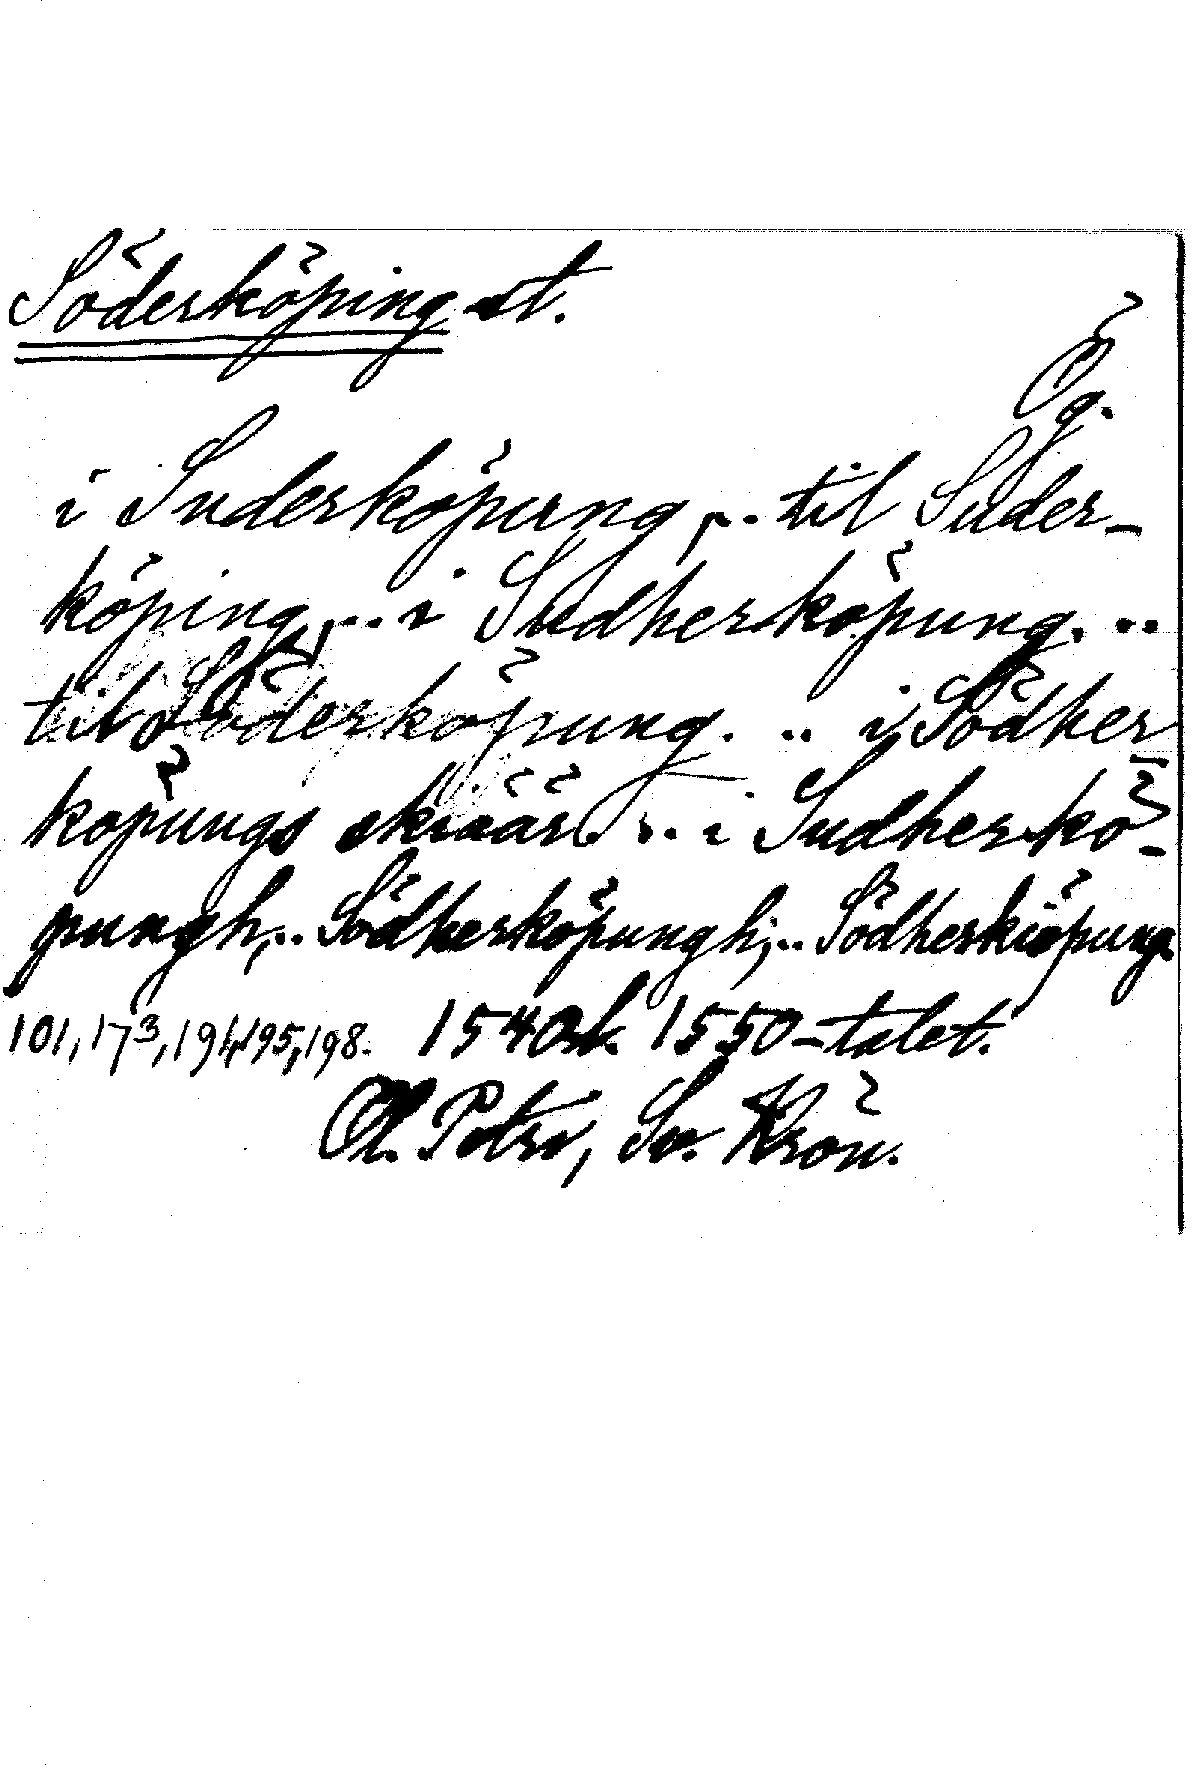 Söderköping st.
Ög.
i Suderköpung, .. til Suder-
köping, .. i Sudherköpung. ..
til Söderköpung. .. i Södher
köpungs skiäär. .. i Sudherkö-
pungh, .. Södherköpungh; .. Södherkiöpung.
101, 173, 194, 195, 198. 1540 o. 1550-talet.
Ol. Petri, Sv. Krön.